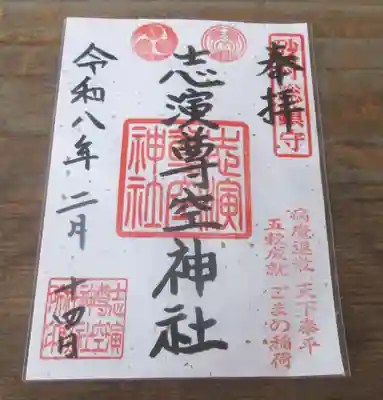 奉拝
志演尊空神社
志演尊空神社
令和八年二月
十四日
病魔退散 天下泰平
五穀成就 ごまの稲荷